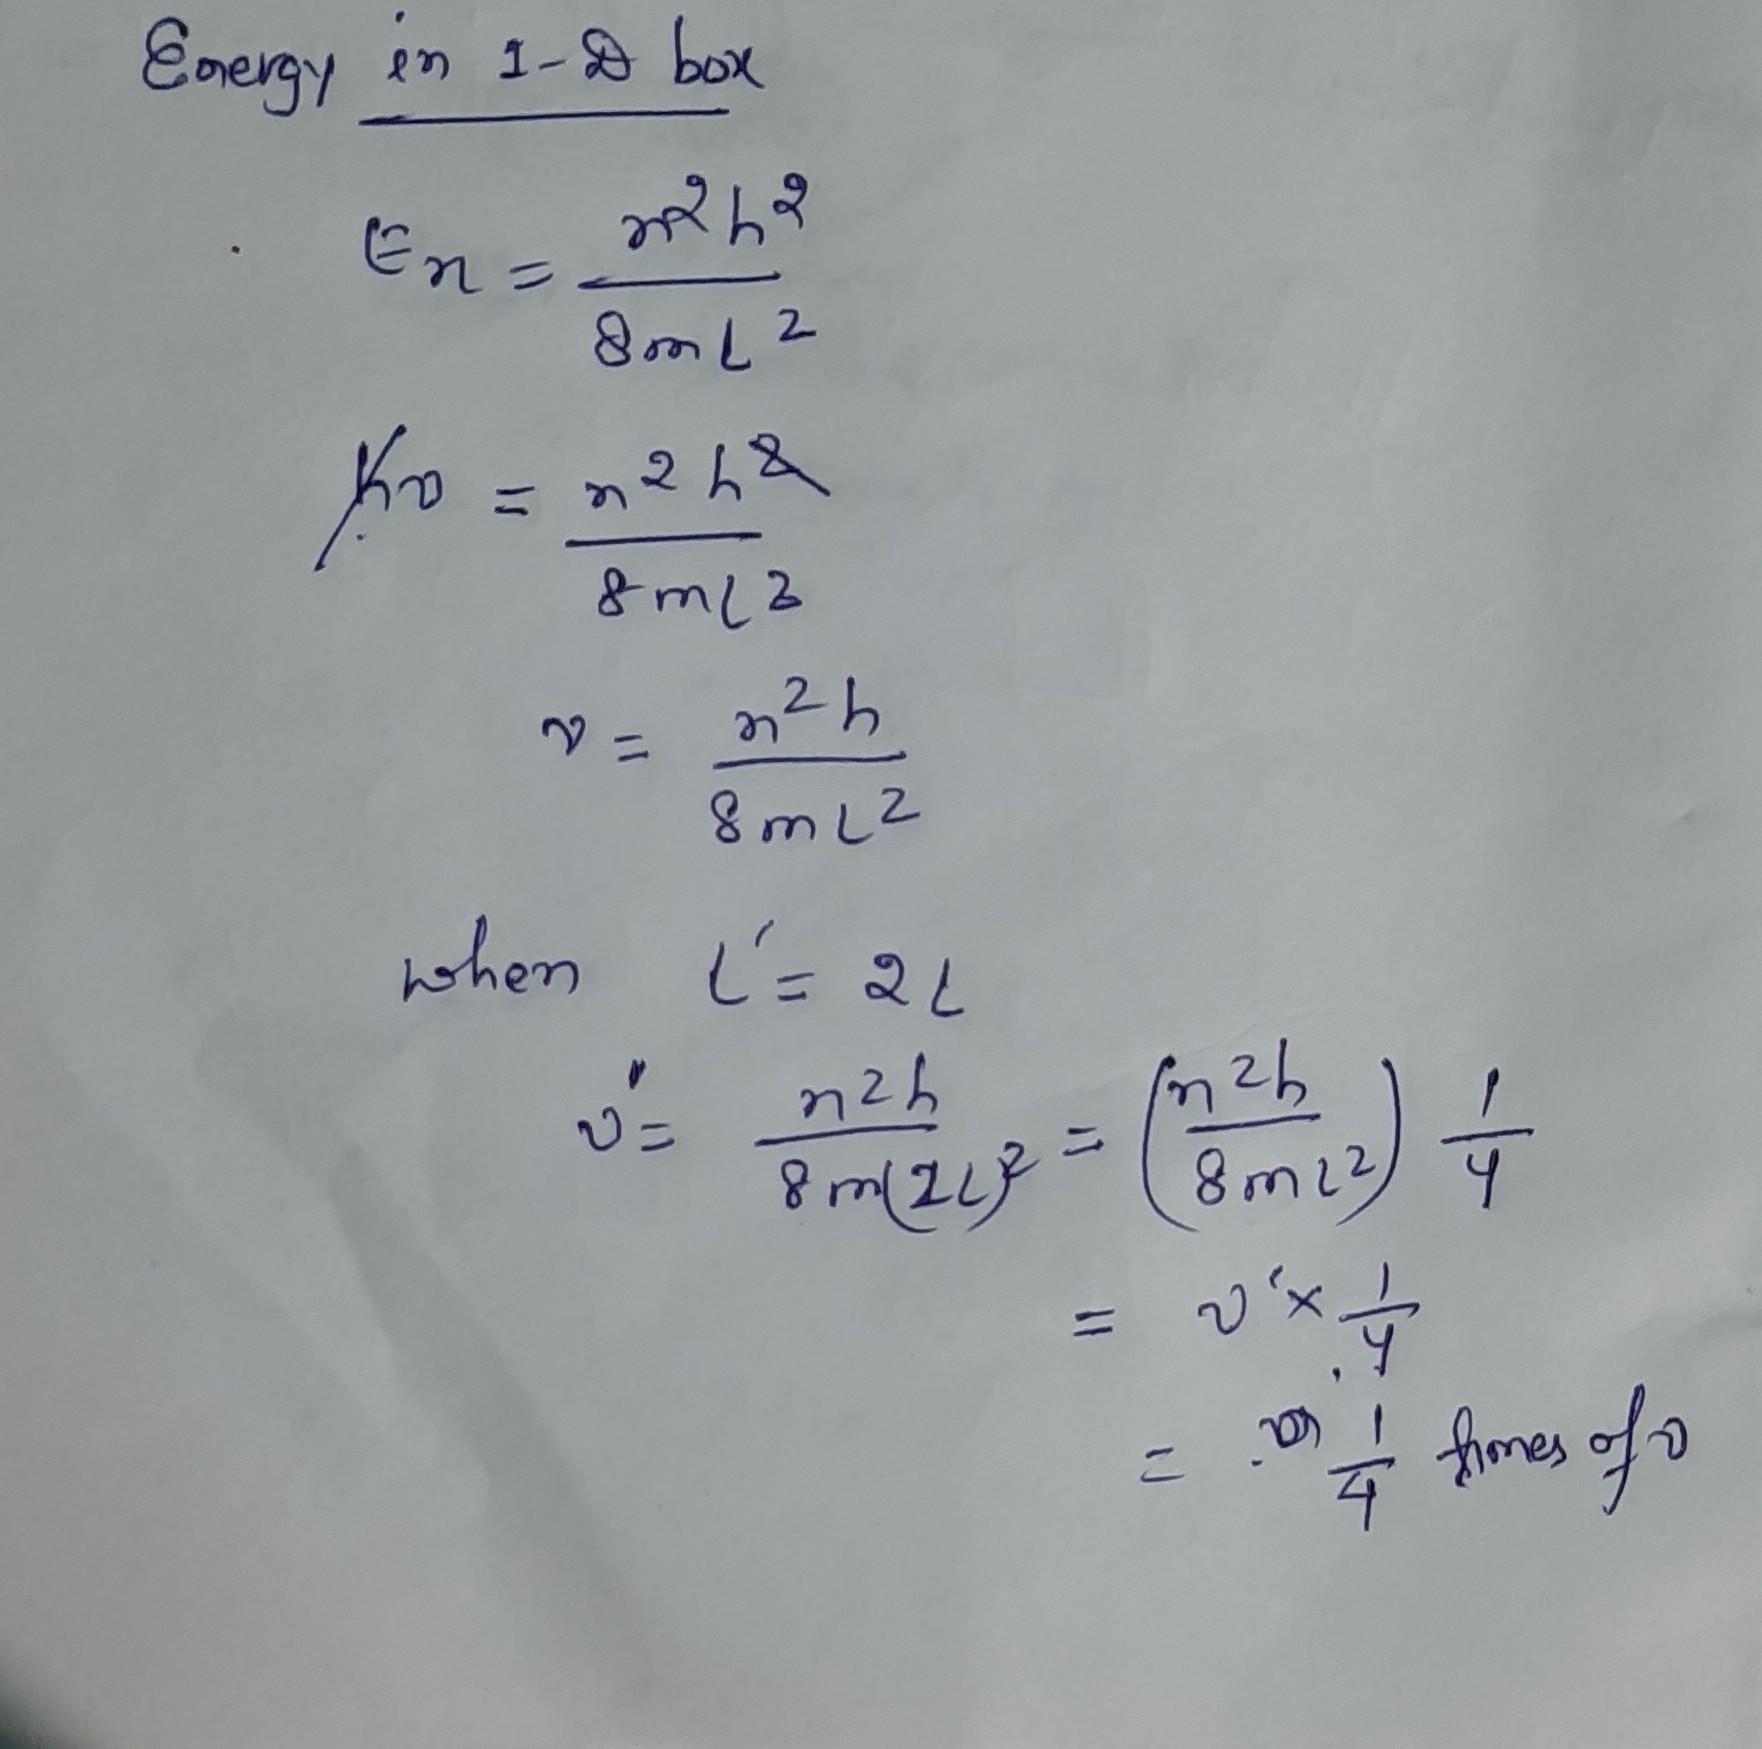 Energy in 1-D box
En = n²h² / 8mL²
hν = n²h² / 8mL²
ν = n²h / 8mL²
when L' = 2L
ν' = n²h / 8m(2L)² = (n²h / 8mL²) 1/4
= ν' × 1/4
= 1/4 times of ν